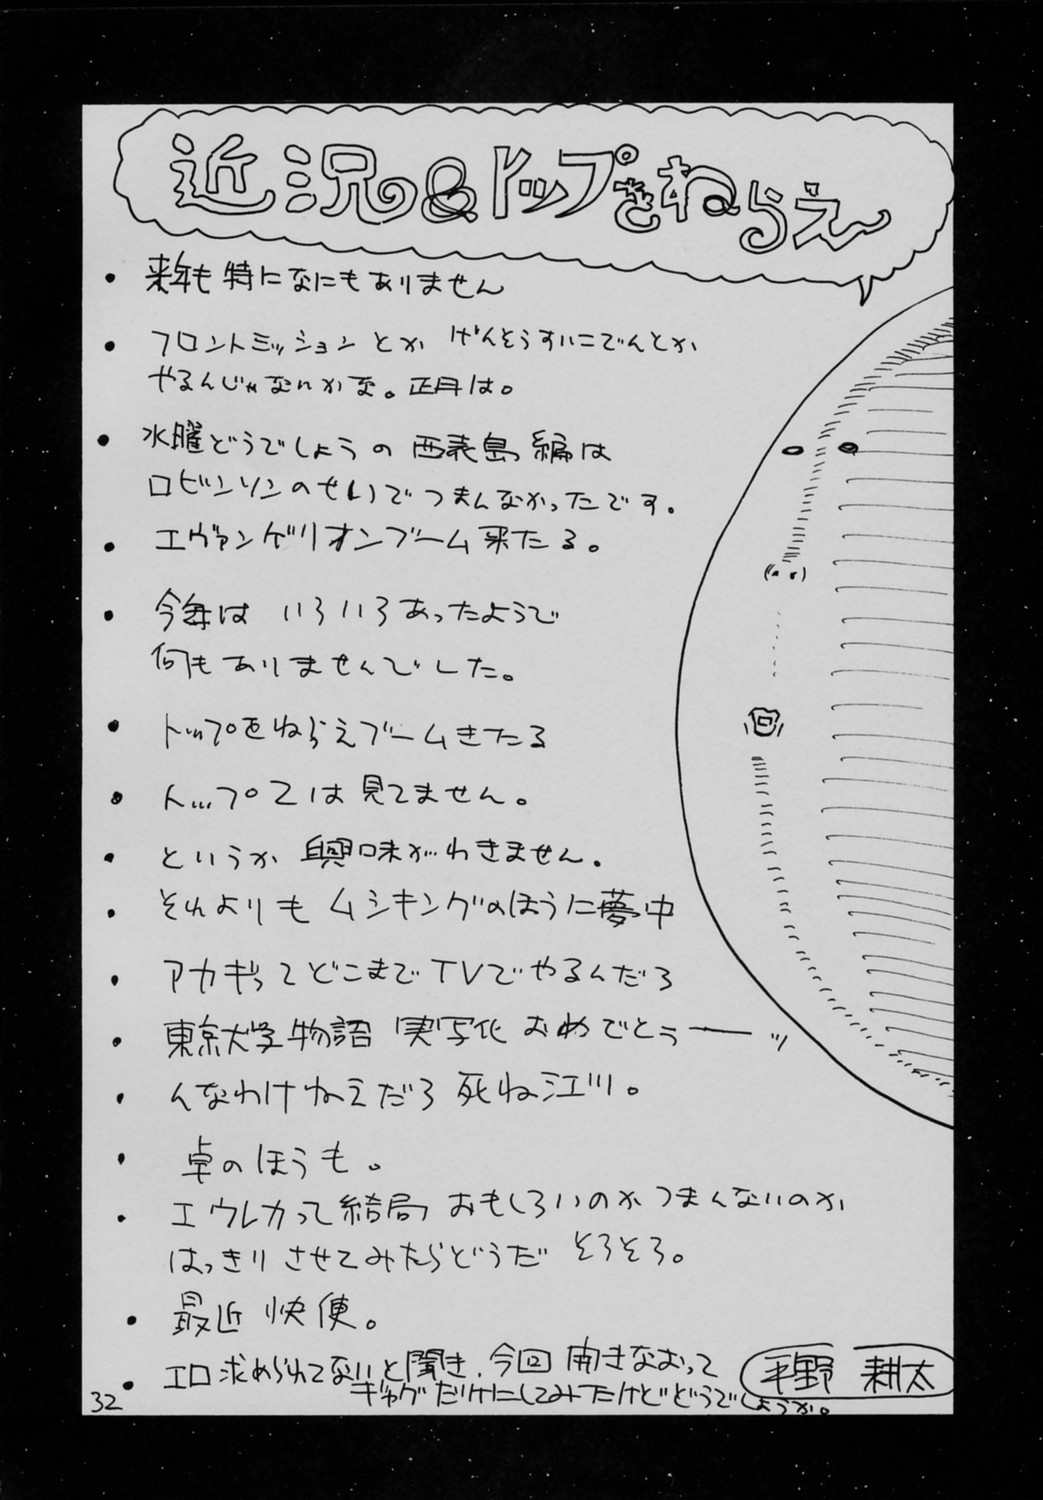 近況&トップをねらえ〜
・来年も特になにもありません
・フロントミッションとか げんそうすいこでんとか
やるんじゃないかな。正月は。
・水曜どうでしょうの西表島編は
ロビンソンのせいでつまんなかったです。
・エヴァンゲリオンブーム来たる。
・今年は いろいろあったようで
何もありませんでした。
・トップをねらえブームきたる
・トップ2は見てません。
・というか 興味がわきません。
・それよりも ムシキングのほうに夢中
・アカギってどこまでTVでやるんだろ
・東京大学物語 実写化 おめでとぅーーッ
・んなわけねえだろ 死ね江川。
・卓のほうも。
・エウレカって結局 おもしろいのかつまんないのか
はっきりさせてみたらどうだ そろそろ。
・最近 快便。
・エロ求められてないと聞き、今回 開きなおって
ギャグだけにしてみたけどどうでしょうか。
平野 耕太
32